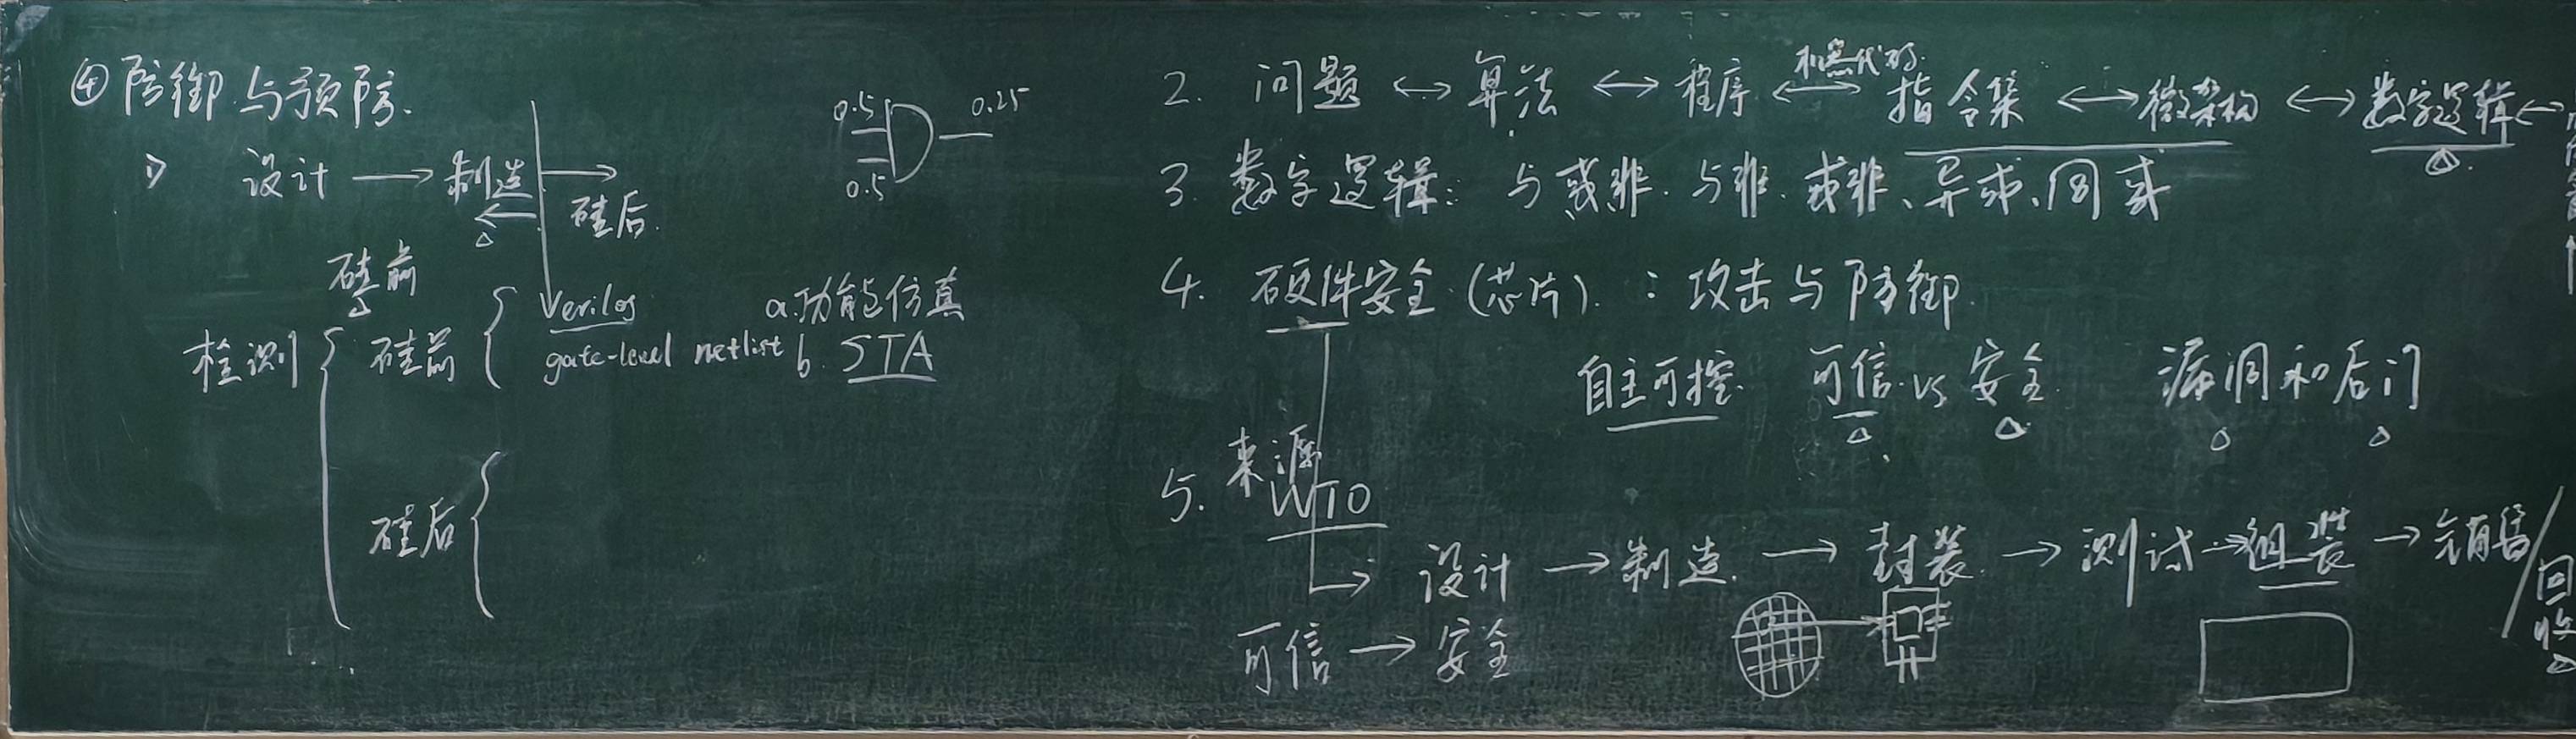 ④防御与预防.
1) 设计 → 制造 → 硅后
硅前
检测 硅前 Verilog
gate-level netlist
a.功能仿真
b. STA
硅后
0.5
0.5
0.25
2. 问题 ↔ 算法 ↔ 程序 ↔ 指令集 ↔ 微架构 ↔ 数字逻辑 ↔
机器代码
3. 数字逻辑: 与或非. 与非. 或非、异或、同或
4. 硬件安全(芯片). : 攻击与防御.
自主可控 可信 vs 安全 漏洞和后门
来源
5. WTO
设计 → 制造. → 封装 → 测试 → 组装 → 销售/回收
可信 → 安全